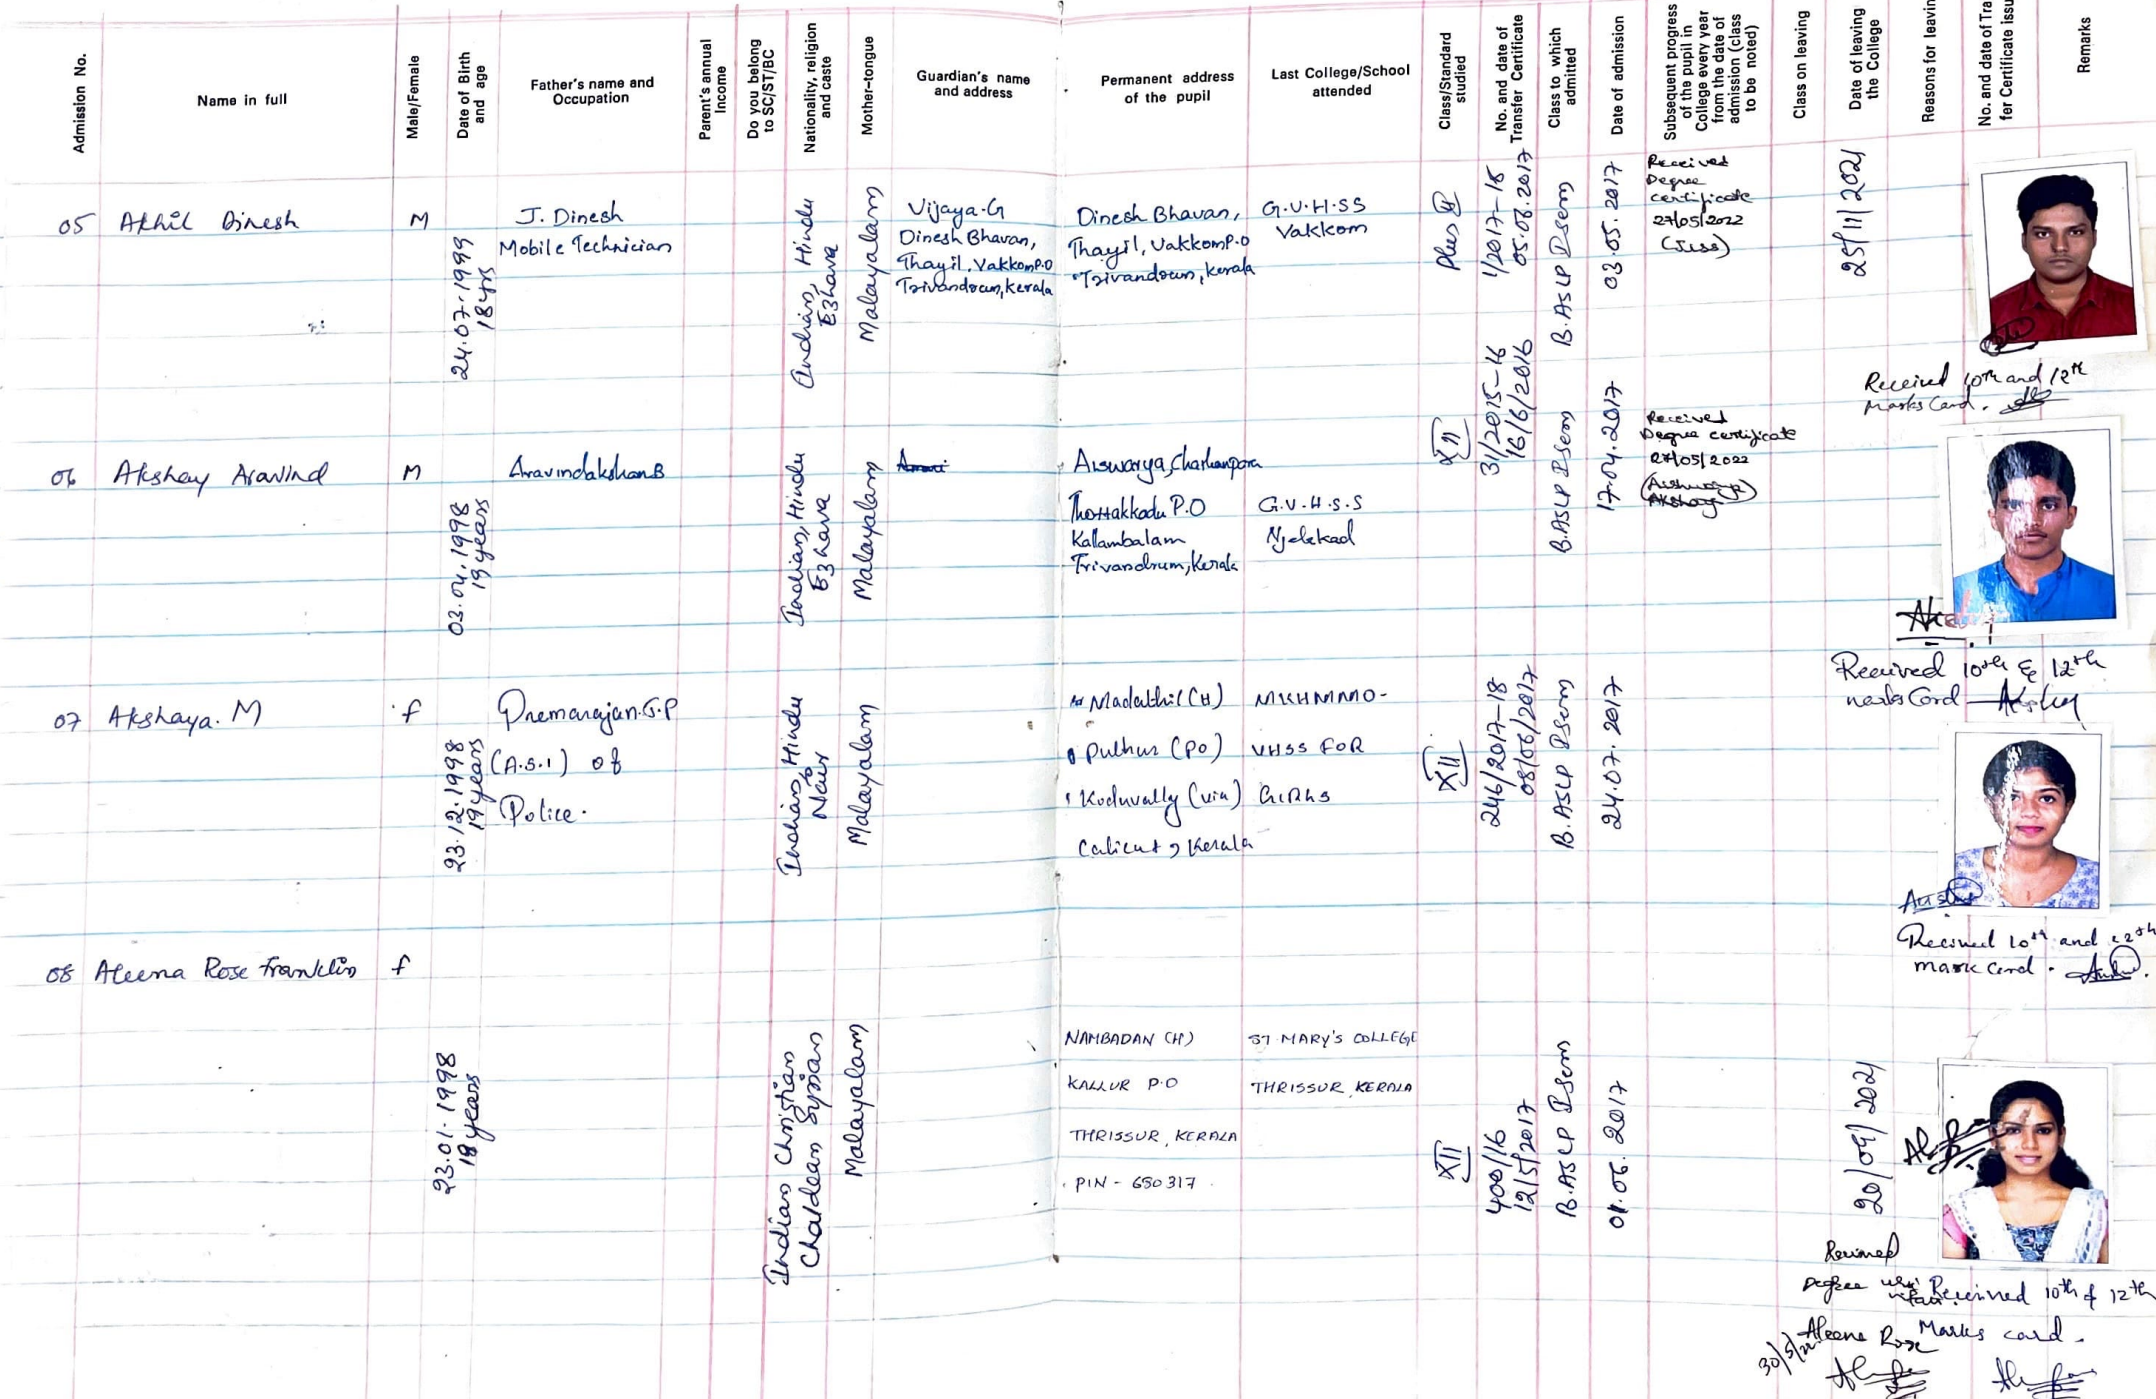 Admission No.
Name in full
Male/Female
Date of Birth
and age
Father's name and
Occupation
Parent's annual
Income
Do you belong
to SC/ST/BC
Nationality, religion
and caste
Mother-tongue
Guardian's name
and address
Permanent address
of the pupil
Last College/School
attended
Class/Standard
studied
No. and date of
Transfer Certificate
Class to which
admitted
Date of admission
Subsequent progress
of the pupil in
College every year
from the date of
admission (class
to be noted)
Class on leaving
Date of leaving
the College
Reasons for leavin
No. and date of Tra
fer Certificate issu
Remarks
05
Akhil Dinesh
M
24.07.1999
18 yrs
J. Dinesh
Mobile Technician
Indian, Hindu
Ezhava
Malayalam
Vijaya.G
Dinesh Bhavan,
Thayil, Vakkom P.O
Trivandrum, Kerala
Dinesh Bhavan,
Thayil, Vakkom P.O
Trivandrum, Kerala
G.V.H.SS
Vakkom
Plus II
1/2017-18
05.06.2017
B.ASLP I sem
03.05.2017
Received
Degree
certificate
27/05/2022
25/11/2021
Received 10th and 12th
Marks Card.
06
Akshay Aravind
M
03.04.1998
19 years
Aravindakshan B
Indian, Hindu
Ezhava
Malayalam
Aiswarya, Charkanpara
Thottakkadu P.O
Kallambalam
Trivandrum, Kerala
G.V.H.S.S
Njekkad
XII
31/2015-16
16/6/2016
B.ASLP I sem
17.04.2017
Received
Degree certificate
27/05/2022
Received 10th & 12th
marks Card Akshay
07
Akshaya. M
f
23.12.1998
19 years
Premarajan.G.P
(A.S.I) of
Police.
Indian, Hindu
Nair
Malayalam
Madathil (H)
Puthur (PO)
Koduvally (via)
Calicut, Kerala
MKHMMO-
VHSS FOR
GIRLS
XII
246/2017-18
08/06/2017
B.ASLP I sem
24.07.2017
Received 10th and 12th
mark card.
08
Aleena Rose Franklin
f
23.01.1998
18 years
Indian Christian
Chaldean Syrian
Malayalam
NAMBADAN (H)
KALLUR P.O
THRISSUR, KERALA
PIN - 680317
ST MARY'S COLLEGE
THRISSUR, KERALA
XII
400/16
12/5/2017
B.ASLP I sem
01.06.2017
20/09/2021
Received
Degree
Received 10th & 12th
Marks card.
Aleena Rose